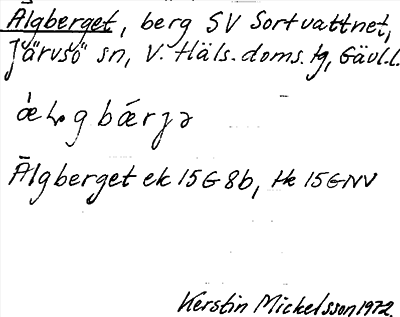 Älgberget, berg SV Sortvattnet,
Järvsö sn, V. Häls. doms. tg, Gävl.l.
Älgberget ek 15G8b, Hk 15GNV
Kerstin Mickelsson 1972.